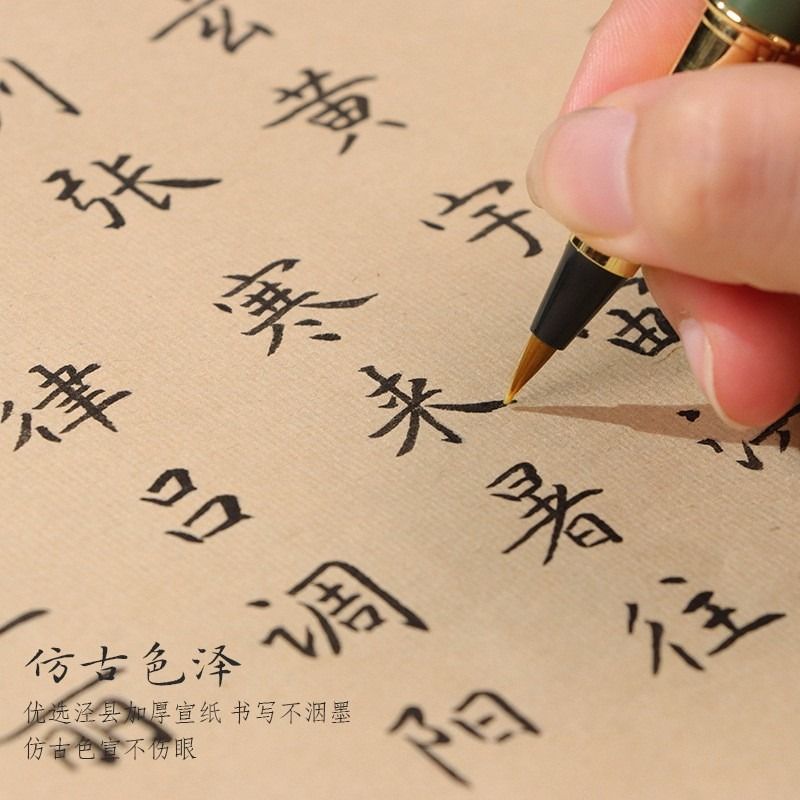 玄黄宇宙洪
列张寒来暑往
律吕调阳
雨
仿古色泽
优选泾县加厚宣纸 书写不洇墨
仿古色宣不伤眼